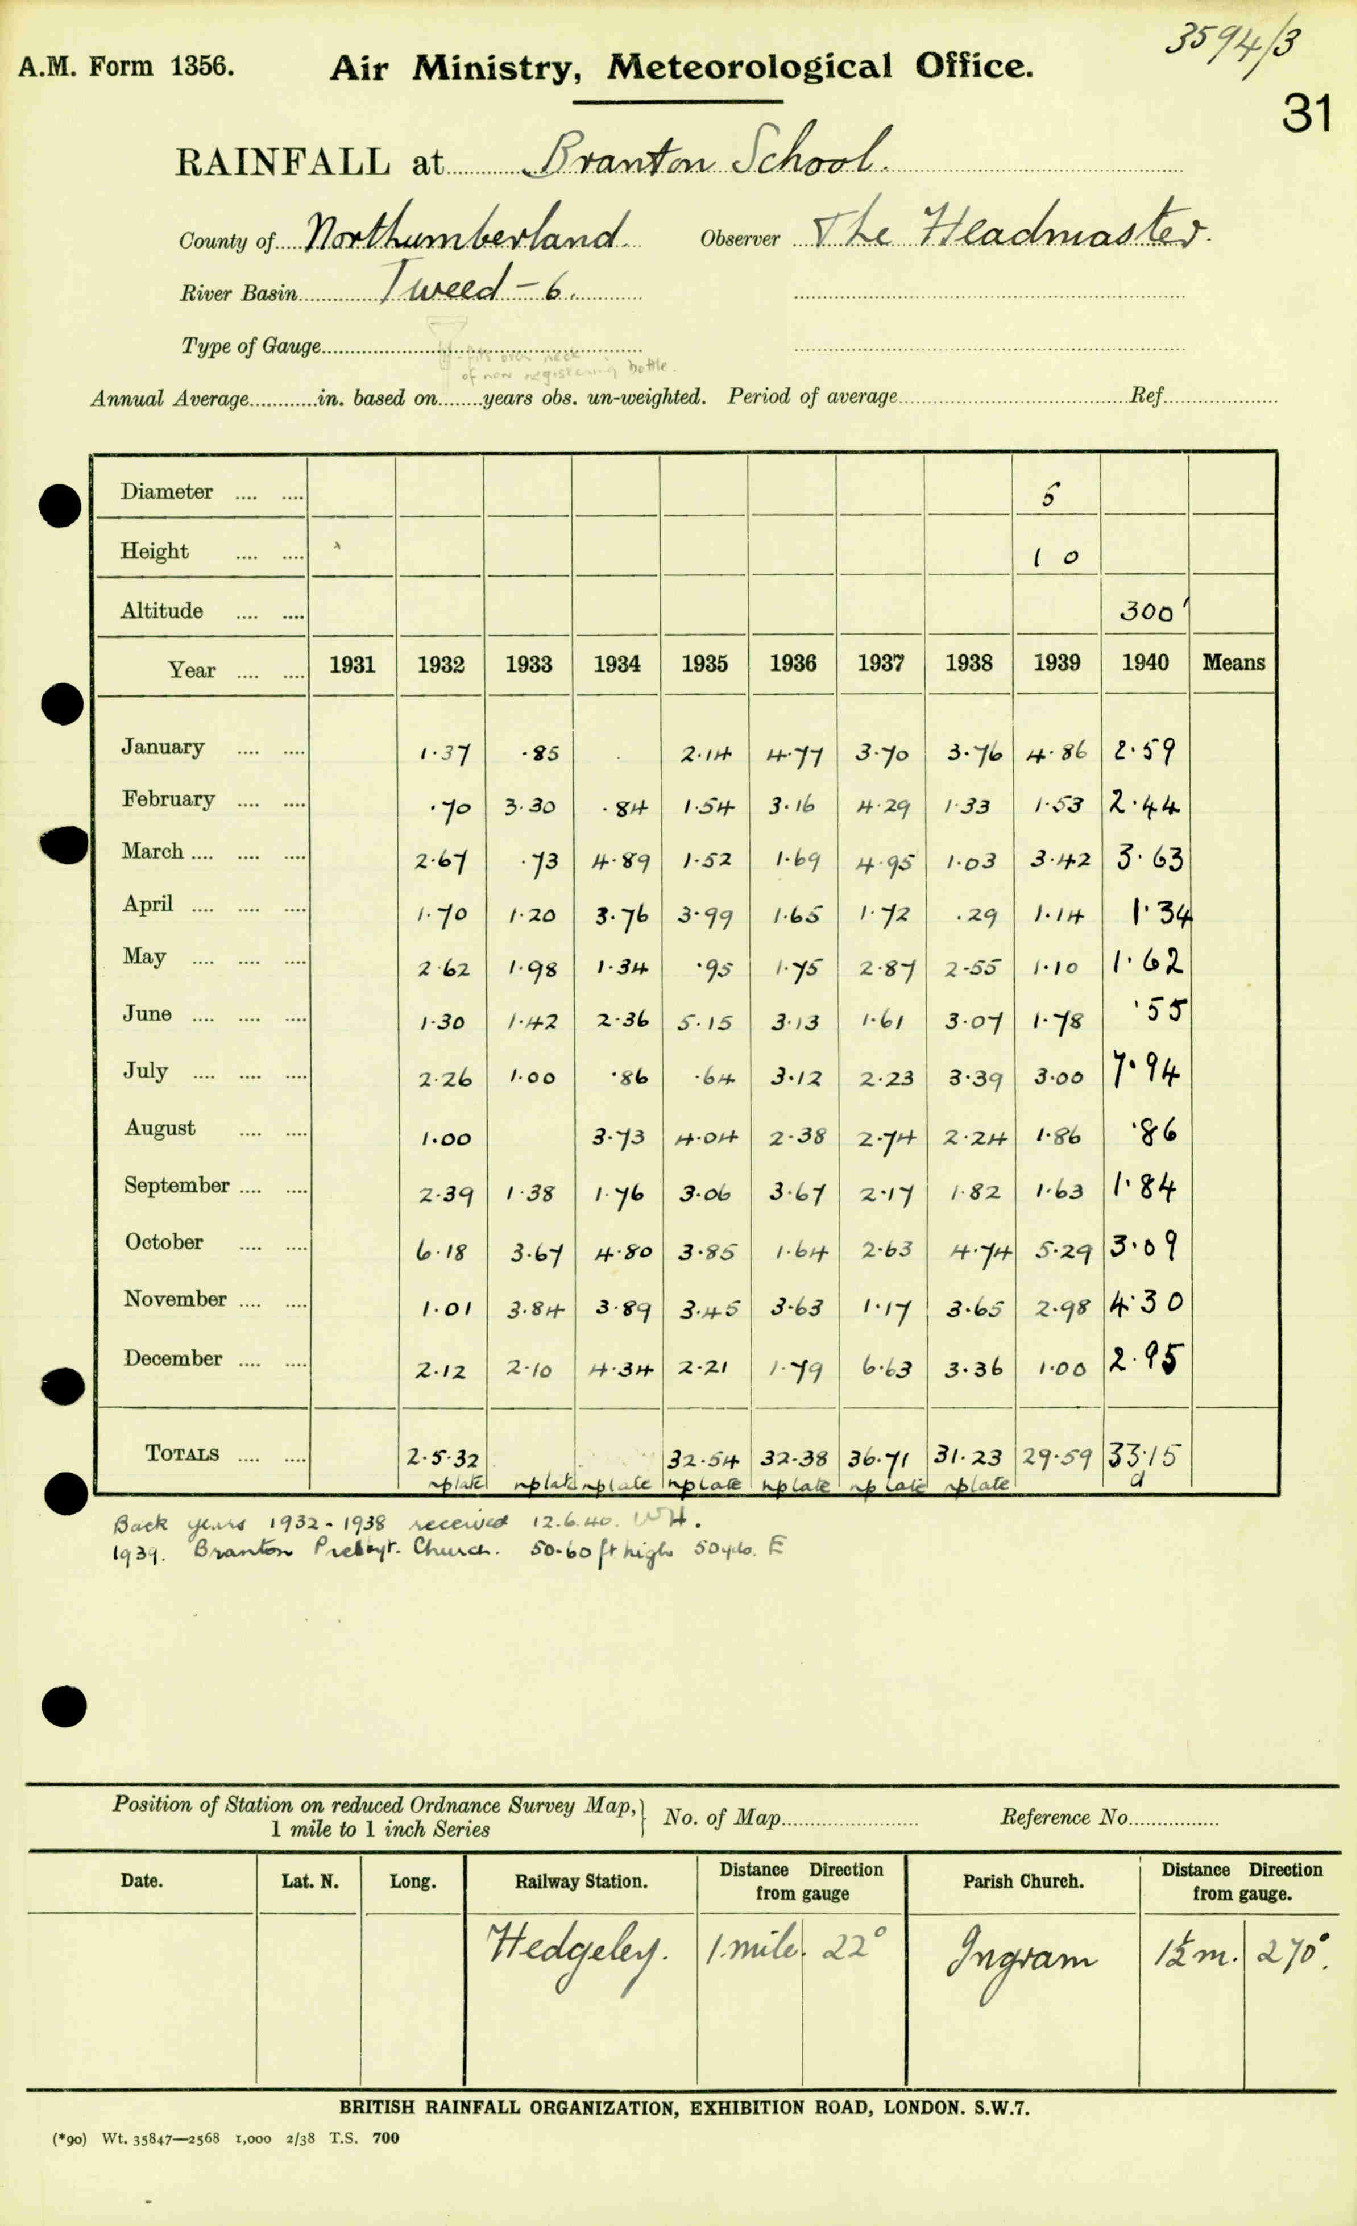 3594/3
A.M. Form 1356. Air Ministry, Meteorological Office.
31
RAINFALL at Branton School.
County of Northumberland. Observer The Headmaster.
River Basin Tweed - 6.
Type of Gauge
- fits over neck
of new registering bottle.
Annual Average in. based on years obs. un-weighted. Period of average Ref.
Diameter 5
Height 1 0
Altitude 300'
Year 1931 1932 1933 1934 1935 1936 1937 1938 1939 1940 Means
January 1.37 .85 2.14 4.77 3.70 3.76 4.86 2.59
February .70 3.30 .84 1.54 3.16 4.29 1.33 1.53 2.44
March 2.67 .73 4.89 1.52 1.69 4.95 1.03 3.42 3.63
April 1.70 1.20 3.76 3.99 1.65 1.72 .29 1.14 1.34
May 2.62 1.98 1.34 .95 1.75 2.87 2.55 1.10 1.62
June 1.30 1.42 2.36 5.15 3.13 1.61 3.07 1.78 .55
July 2.26 1.00 .86 .64 3.12 2.23 3.39 3.00 7.94
August 1.00 3.73 4.04 2.38 2.74 2.24 1.86 .86
September 2.39 1.38 1.76 3.06 3.67 2.17 1.82 1.63 1.84
October 6.18 3.67 4.80 3.85 1.64 2.63 4.74 5.29 3.09
November 1.01 3.84 3.89 3.45 3.63 1.17 3.65 2.98 4.30
December 2.12 2.10 4.34 2.21 1.79 6.63 3.36 1.00 2.95
TOTALS 2.5.32 32.54 32.38 36.71 31.23 29.59 33.15
np late np late np late np late np late np late np late d
Back years 1932-1938 received 12.6.40. WH.
1939. Branton Presbyt. Church. 50-60 ft high 50 yds. E
Position of Station on reduced Ordnance Survey Map, No. of Map Reference No.
1 mile to 1 inch Series
Date. Lat. N. Long. Railway Station. Distance Direction from gauge Parish Church. Distance Direction from gauge.
Hedgeley. 1.mile. 22° Ingram 1½ m. 270°.
BRITISH RAINFALL ORGANIZATION, EXHIBITION ROAD, LONDON. S.W.7.
(*90) Wt. 35847—2568 1,000 2/38 T.S. 700